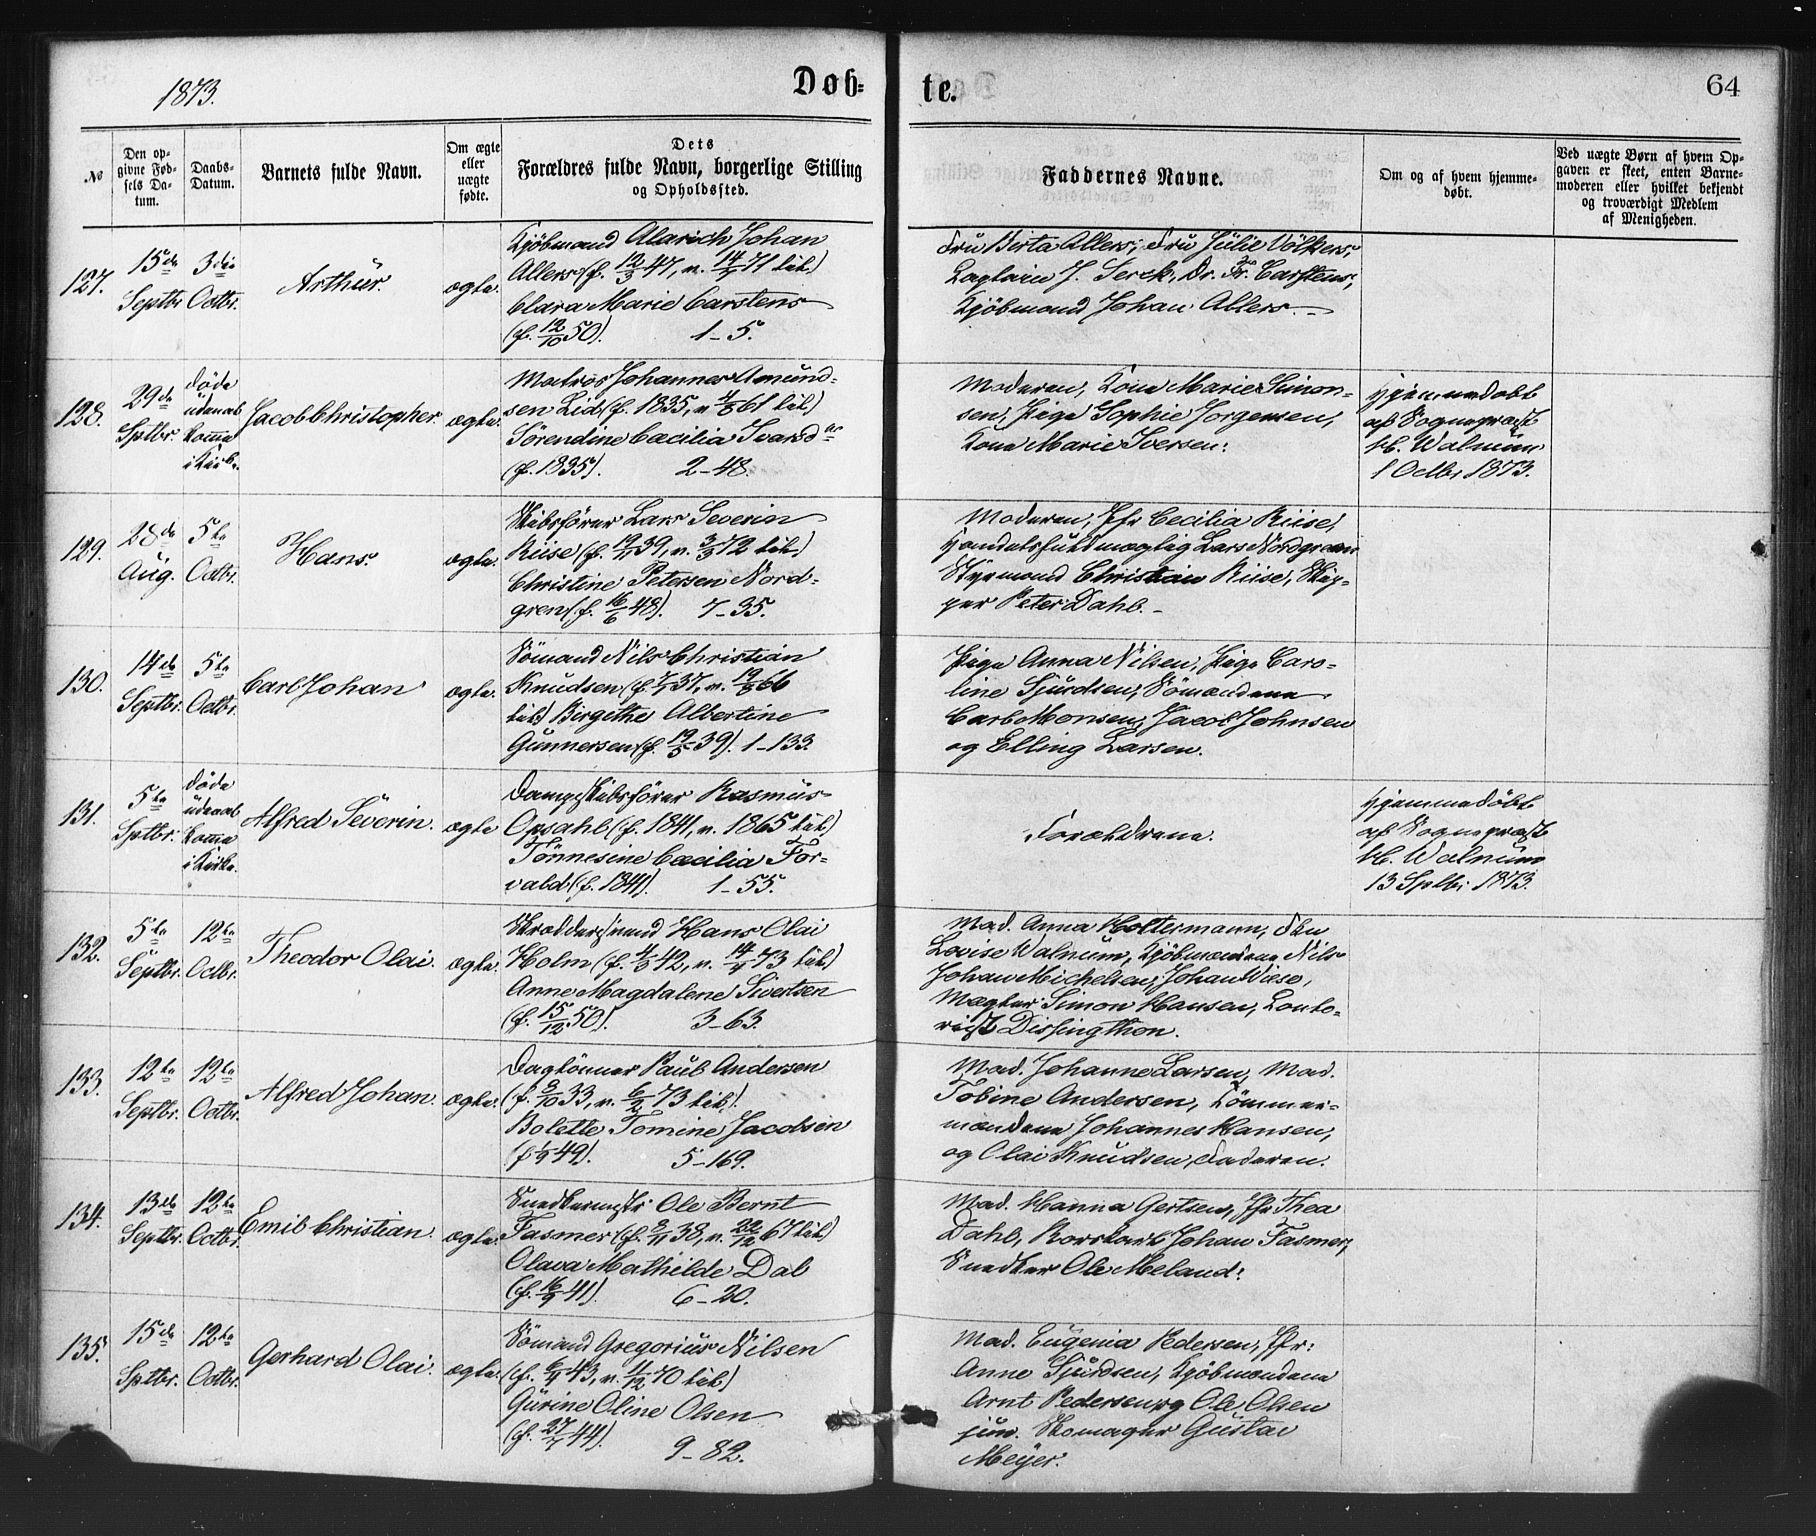 1873.
Døb=
te.
64
№
Den op-
givne Fød-
sels Da-
tum.
Daabs-
Datum.
Barnets fulde Navn.
Om ægte
eller
uægte
fødte.
Dets
Forældres fulde Navn, borgerlige Stilling
og Opholdssted.
Faddernes Navne.
Om og af hvem hjemme-
døbt.
Ved uægte Børn af hvem Op-
gaven er skeet, enten Barne-
moderen eller hvilket bekjendt
og troværdigt Medlem
af Menigheden.
127.
15de
Septbr.
3die
Octbr.
Arthur.
ægte.
Kjöbmand Alarich Johan
Allers (f. 12/3 47, v. 14/7 71 til)
Clara Marie Carstens
(f. 12/10 50). 1-5.
Fru Berta Allers, Fru Julie Völkers,
Captain J. Serck, Dr. Fr. Carstens,
Kjöbmand Johan Allers.
128.
29de
Sptbr.
Døde
udenat
komme
i Kirke.
Jacob Christopher.
ægte.
Matros Johannes Amund-
sen Lid (f. 1835, v 4/8 61 til)
Sørendine Cæcilia Ivarsdr
(f. 1835). 2-48.
Moderen, Kone Marie Simon-
sen, Pige Sophie Jorgensen,
Kone Marie Iversen.
Hjemmedøbt
af Sognepræst
Kl. Walnum
1 Octbr 1873.
129.
28de
Aug.
5te
Octbr.
Hans.
ægte.
Skibsförer Lars Severin
Riise (f. 19/11 39, v. 3/3 72 til)
Christine Petersen Nord-
gren (f. 16/6 48). 7-35.
Moderen, Jfr Cecilia Riise,
Handelsfuldmægtig Lars Nordgreen
Styrmand Christian Riise, Skip-
per Peter Dahl.
130.
14de
Septbr.
5te
Octbr.
Carl Johan
ægte.
Sömand Nils Christian
Knudsen (f. 7/7 37, v. 19/8 66
til) Birgithe Albertine
Gunnersen (f. 19/5 39). 1-133.
Pige Anna Nilsen, Pige Caro-
line Sjurdsen, Sömændene
Carl Monsen, Jacob Johnsen
og Elling Larsen.
131.
5te
Sptbr.
Døde
udenat
komme
i Kirke.
Alfred Severin.
ægte
Dampskibsförer Rasmus
Opsahl (f. 1841, v. 1865 til)
Tönnesine Cæcilia For-
vald (f. 1841). 1-55.
Forældrene.
Hjemmedöbt
af Sognepræst
Kl. Walnum
13 Sptbr 1873.
132.
5te
Septbr.
12te
Octbr.
Theodor Olai.
ægte.
Skræddersvend Hans Olai
Holm (f. 4/3 42, v. 14/4 73 til)
Anne Magdalene Sivertsen
(f. 15/12 50). 3-63.
Mad. Anna Holtermann, Frk
Lovise Walnum, Kjöbmændene Nils
Johan Michelsen, Johan Wiese,
Mægler Simon Hansen, Konto-
rist Dissingthon.
133.
12te
Septbr.
12te
Octbr.
Alfred Johan.
ægte.
Daglönner Paul Andersen
(f. 9/10 33, v. 6/2 73 til).
Bolette Tomine Jacobsen
(f 1/9 49). 5-169.
Mad. Johanne Larsen, Mad.
Tobine Andersen, Tömmer-
mændene Johannes Hansen,
og Olai Knudsen, Faderen.
134.
13de
Septbr.
12te
Octbr.
Emil Christian.
ægte.
Snedkermestr Ole Bernt
Fasmer (f. 8/11 38, v. 22/12 67 til)
Olava Mathilde Dal
(f. 16/9 41). 6-20.
Mad. Hanna Gertsen, Jfr Thea
Dahl, Korskarl Johan Fasmer,
Snedker Ole Meland.
135.
15de
Sptbr.
12te
Octbr.
Gerhard Olai.
ægte.
Sömand Gregorius Nilsen
(f. 6/4 43, v. 11/12 70 til)
Gurine Oline Olsen
(f. 27/7 44). 9-82.
Mad. Eugenia Pedersen, Jfr.
Anne Sjurdsen, Kjöbmændene
Arnt Pedersen og Ole Olsen
jun. Skomager Gustav
Meyer.